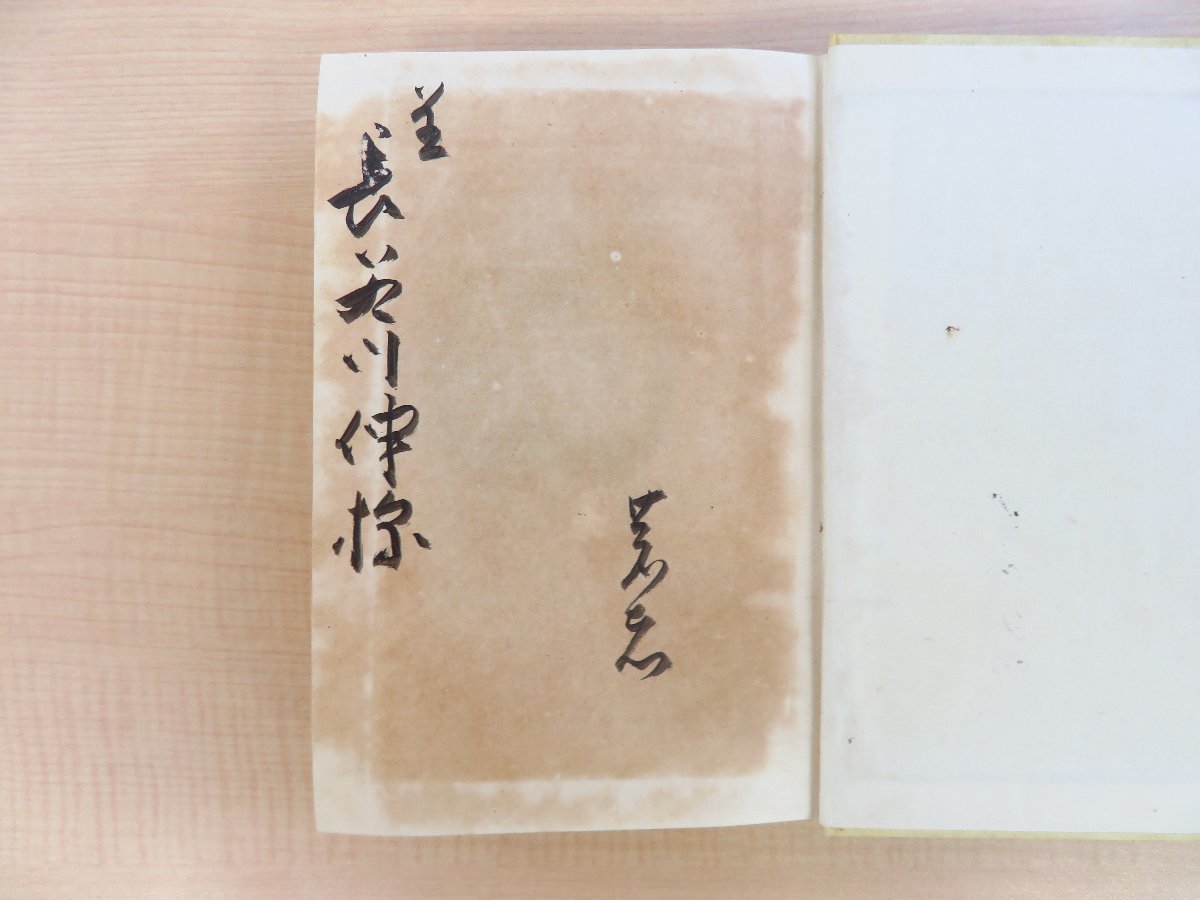 呈
長谷川伸様